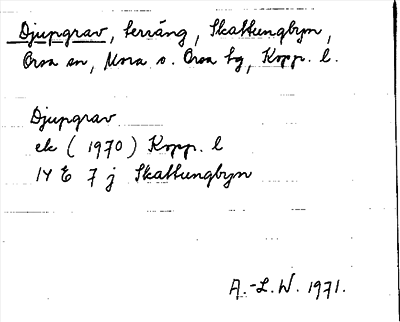 Djupgrav, terräng, Skattungbyn,
Orsa sn, Mora o. Orsa tg, Kopp. l.
Djupgrav
ek (1970) Kopp. l
14 E 7 j Skattungbyn
A.-L.W. 1971.